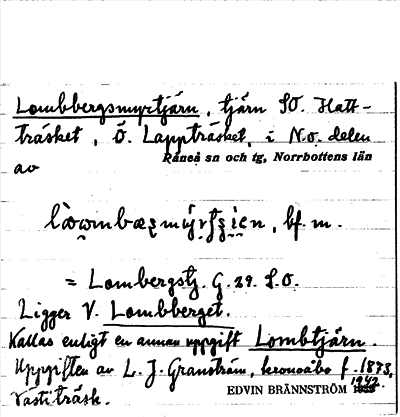 Lombbergsmyrtjärn, tjärn SO. Hatt-
träsket, Ö. Lappträsket, i N.ö. delen
Råneå sn och tg, Norrbottens län
av
bf. m.
= Lombergstj. G. 29. S.O.
Ligger V. Lombberget.
Kallas enligt en annan uppgift Lombtjärn.
Uppgiften av L. J. Granström, kronoåbo f. 1873,
Vastiträsk.
EDVIN BRÄNNSTRÖM 1942